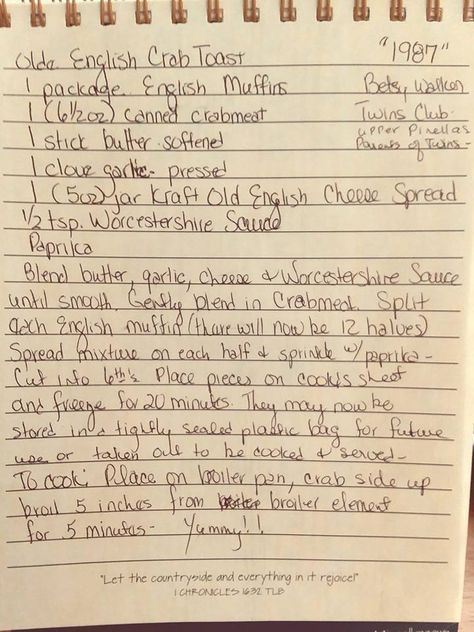 Olde English Crab Toast "1987"
1 package English Muffins Betsy Walker
1 (6 1/2 oz) canned crabmeat Twins Club -
1 stick butter softened upper Pinellas
1 clove garlic - pressed Parents of Twins -
1 (5oz) jar Kraft Old English Cheese Spread
1/2 tsp. Worcestershire Sauce
Paprika
Blend butter, garlic, cheese & Worcestershire Sauce
until smooth. Gently blend in Crabmeat. Split
each English muffin (there will now be 12 halves)
Spread mixture on each half & sprinkle w/ paprika -
Cut into 6th's Place pieces on cookis sheet
and freeze for 20 minutes. They may now be
stored in a tightly sealed plastic bag for future
use or taken out to be cooked & served -
To cook: Place on broiler pan, crab side up
broil 5 inches from broiler element
for 5 minutes - Yummy!!
"Let the countryside and everything in it rejoice!"
1 CHRONICLES 16:32 TLB